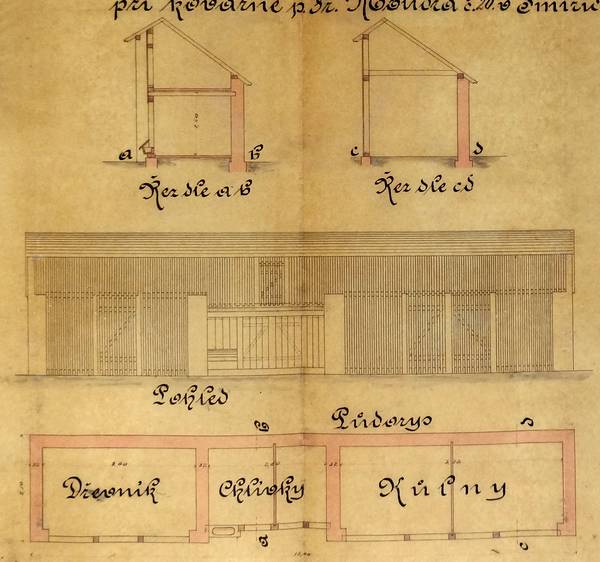 při kovárně p. Dr. v Smiřic
a b c d
Řez dle ab Řez dle cd
Pohled
Půdorys
b d
Dřevník Chlívky Kůlny
a c